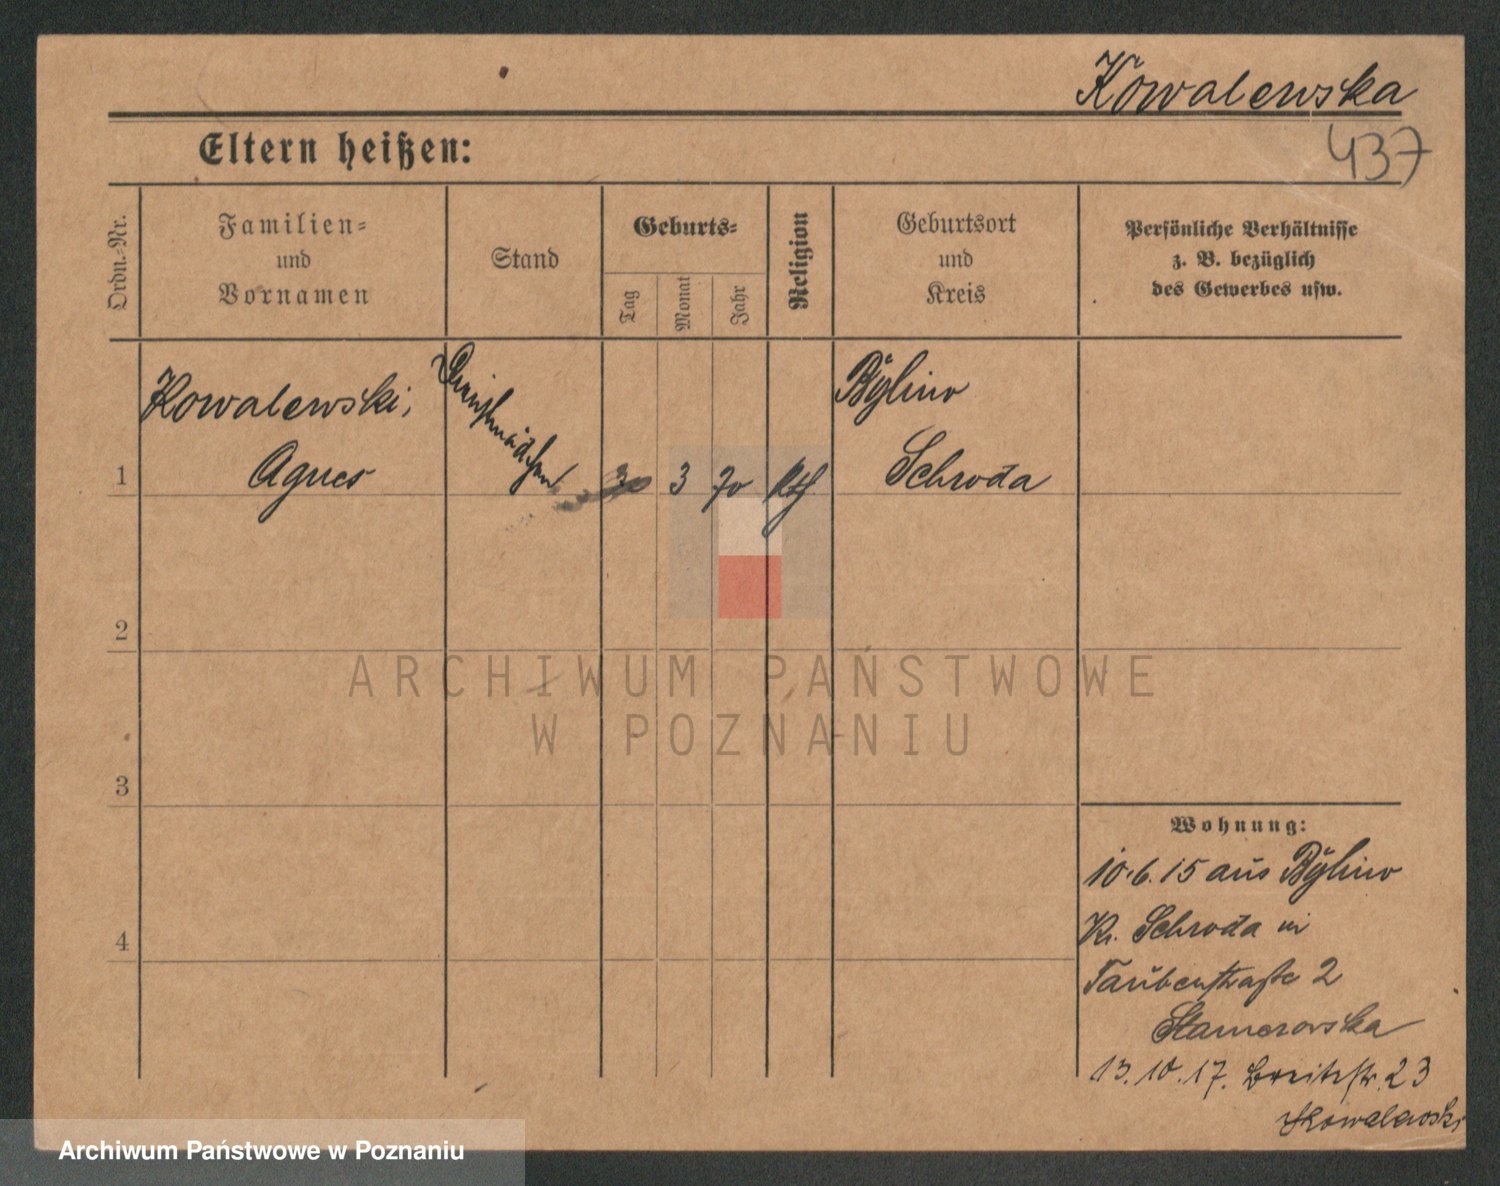 Kowalewska
437
Eltern heißen:
Ordn.-Nr.
Familien-
und
Vornamen
Stand
Geburts-
Tag
Monat
Jahr
Religion
Geburtsort
und
Kreis
Persönliche Verhältnisse
z. B. bezüglich
des Gewerbes usw.
Kowalewski,
Agnes
1
30 3 70 kth
Bÿlino
Schroda
2
3
4
Wohnung:
10.6.15 aus Bÿlino
Kr. Schroda in
Taubenstraße 2
13.10.17. Breitestr. 23
Kowalewski
ARCHIWUM PAŃSTWOWE
W POZNANIU
Archiwum Państwowe w Poznaniu